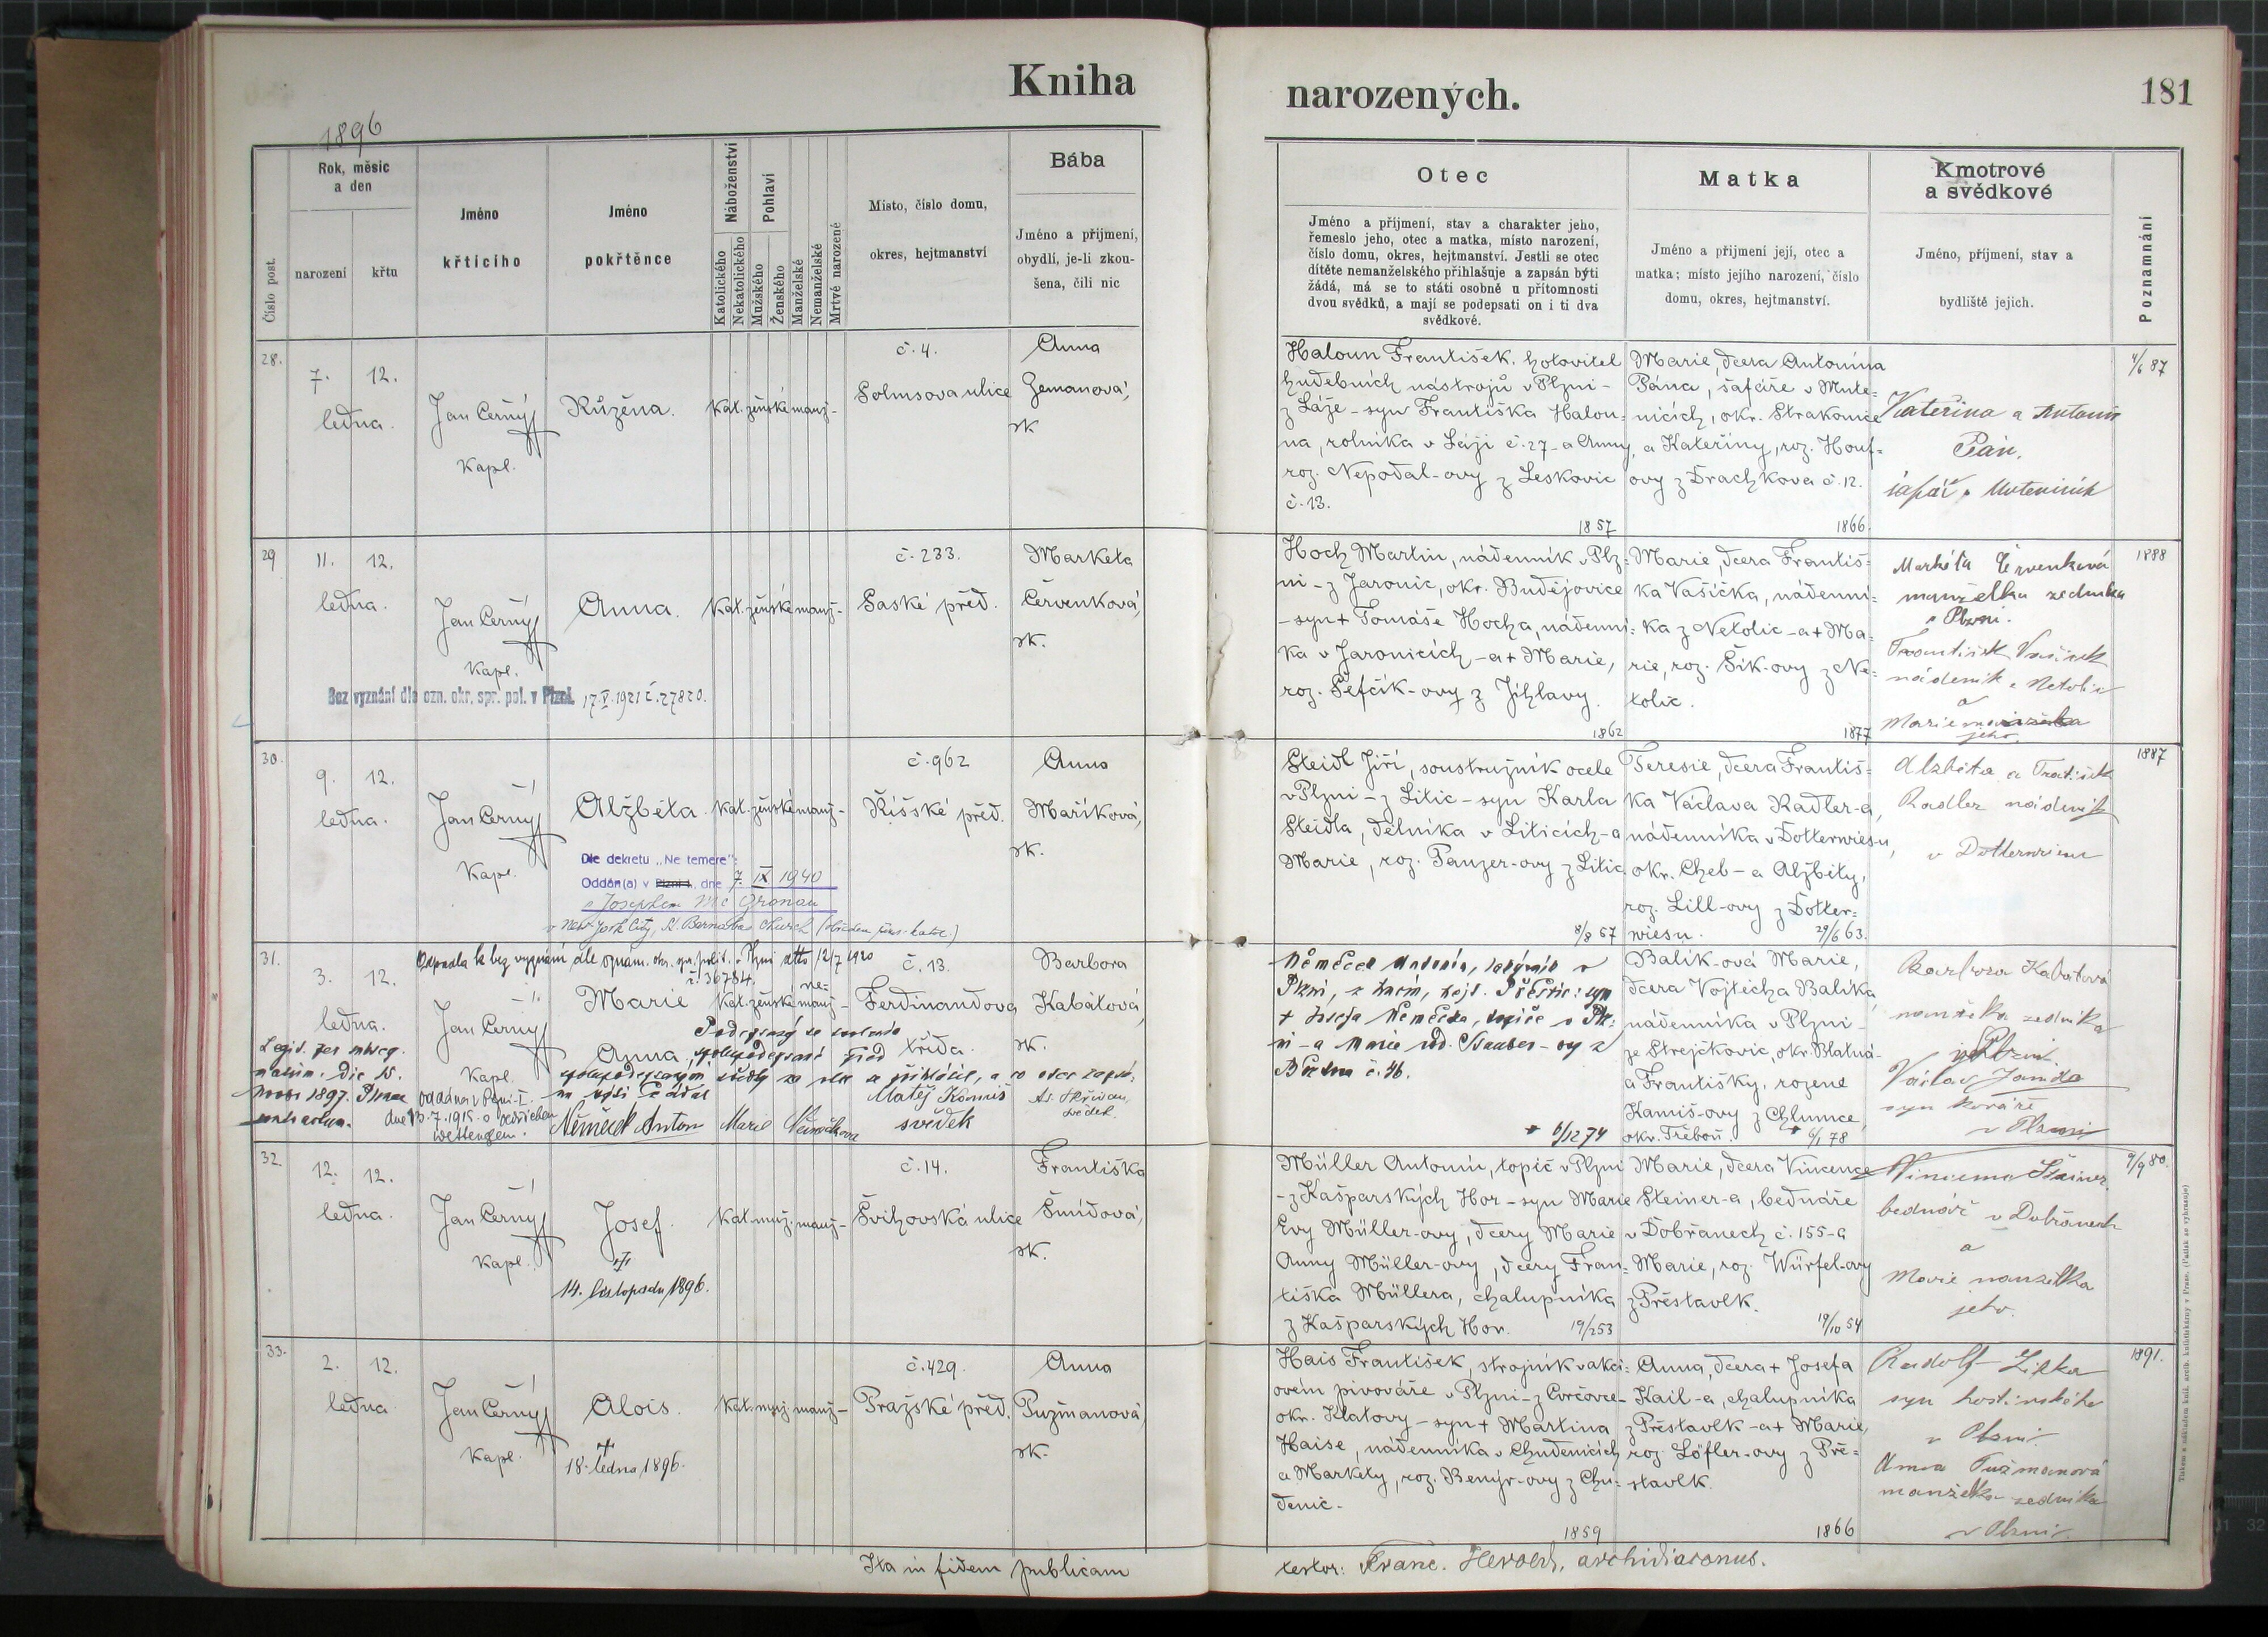 Kniha
narozených.
181
1896
Číslo post.
Rok, měsíc
a den
narození
křtu
Jméno
křtícího
Jméno
pokřtěnce
Náboženství
Katolického
Nekatolického
Pohlaví
Mužského
Ženského
Manželské
Nemanželské
Mrtvé narozené
Místo, číslo domu,
okres, hejtmanství
Bába
Jméno a příjmení,
obydlí, je-li zkou-
šena, čili nic
Otec
Jméno a příjmení, stav a charakter jeho,
řemeslo jeho, otec a matka, místo narození,
číslo domu, okres, hejtmanství. Jestli se otec
dítěte nemanželského přihlašuje a zapsán býti
žádá, má se to státi osobně u přítomnosti
dvou svědků, a mají se podepsati on i ti dva
svědkové.
Matka
Jméno a přijmení její, otec a
matka; místo jejího narození, číslo
domu, okres, hejtmanství.
Kmotrové
a svědkové
Jméno, příjmení, stav a
bydliště jejich.
Poznamnání
28.
7. 12.
ledna.
Jan Černý
Kapl.
Růžena.
Kat. ženské manž-
č. 4.
Solmsova ulice
Anna
Zemanová,
zk
Haloun František, hotovitel
hudebních nástrojů v Plzni -
z Láze - syn Františka Halou-
na, rolníka v Láji č. 27 - a Anny,
roz. Nepodal-ovy z Leskovic
č. 13.
1857
Marie, dcera Antonína
Pána, šafáře v Mute=
nicích, okr. Strakonice
a Kateřiny, roz. Houf=
ovy z Drachkova č. 12.
1866.
Kateřina a Antonín
Pán,
šafář v Mutenicích
4/6 87
29
11. 12.
ledna.
Jan Černý
Kapl.
Anna.
Kat. ženské manž-
č. 233.
Saské před.
Marketa
Červenková,
zk.
Bez vyznání dle ozn. okr. spr. pol. v Plzni. 17.V.1921 č. 27820.
Hoch Martin, nádenník v Plz=
ni - z Jaronic, okr. Budějovice
- syn + Tomáše Hocha, nádenní=
ka v Jaronicích - a + Marie,
roz. Šefčík-ovy z Jihlavy.
1862
Marie, dcera Františ=
ka Vašíčka, nádenní=
ka z Netolic - a + Ma=
rie, roz. Šik-ovy z Ne=
tolic.
1877
Markéta Červenková
manželka zedníka
v Plzni.
František Vašíček
nádeník z Netolic
a
Marie manželka
jeho.
1888
30.
9. 12.
ledna.
Jan Černý
Kapl.
Alžběta.
Kat. ženské manž-
č. 962
Říšské před.
Anna
Maříková,
zk.
Dle dekretu „Ne temere":
Oddán(a) v Plzni I., dne 7. IX 1940
s Josephem Mc Gronau
v New York City, St. Barnabas Church
Steidl Jiří, soustružník ocele
v Plzni - z Litic - syn Karla
Steidla, dělníka v Liticích - a
Marie, roz. Panzer-ovy z Litic
8/8 67
Teresie, dcera Františ=
ka Václava Radler-a,
nádenníka v Dotterwiesu,
okr. Cheb - a Alžběty,
roz. Lill-ovy z Dotter=
wiesu.
29/6 63.
Alžběta a František
Radler nádeník
v Dotterwiesu
1887
31.
3. 12.
ledna.
Odpadla k bez vyznání dle oznám. okr. spr. polit. v Plzni dtto 12/7 1920
č. 36784.
Jan Černý
Kapl.
Marie
Anna
Kat. ženské manž-
ne=
č. 13.
Ferdinandova
třída.
Barbora
Kabátová,
zk.
oddána v Plzni-I.
dne 13.7.1915 s
Němeček Anton
Matěj Komiš
svědek
svědek
+ Josefa Němečka
č. 46.
* 6/12 74
Balík-ová Marie,
dcera Vojtěcha Balíka
nádenníka v Plzni -
ze Strejčkovic, okr. Blatná -
a Františky, rozené
Kamiš-ovy z Chlumce,
okr. Třeboň.
* 6/1 78
Barbora Kabátová
manželka zedníka
v Plzni.
Václav Janda
syn kováře
v Plzni
32.
12. 12.
ledna.
Jan Černý
Kapl.
Josef.
14. listopadu 1896.
Kat. muž. manž-
č. 14.
Švihovská ulice
Františka
Šmídová,
zk.
Müller Antonín, topič v Plzni
- z Kašparských Hor - syn Marie
Evy Müller-ovy, dcery Marie
Anny Müller-ovy, dcery Fran=
tiška Müllera, chalupníka
z Kašparských Hor.
19/2 53
Marie, dcera Vincence
Steiner-a, bednáře
v Dobřanech č. 155 - a
Marie, roz. Würfel-ovy
z Přestavlk.
19/10 54
Steiner
bednář v Dobřanech
a
Marie manželka
jeho.
9/9 80.
33.
2. 12.
ledna
Jan Černý
Kapl.
Alois.
+
18. ledna 1896.
Kat. muž. manž-
č. 429.
Pražské před.
Anna
Pužmanová,
zk.
Hais František, strojník v akci=
ovém pivováře v Plzni - z Cvrčovce -
okr. Klatovy - syn + Martina
Haise, nádenníka v Chudenicích
a Markéty, roz. Benýr-ovy z Chu=
denic -
1859
Anna, dcera + Josefa
Kail-a, chalupníka
z Přestavlk - a + Marie,
roz. Löfler-ovy z Pře=
stavlk.
1866
Rudolf Liška
syn hostinského
v Plzni.
Anna Pužmanová
manželka zedníka
v Plzni.
1891.
Ita in fidem publicam
testor: Franc. Herold, archidiaconus.